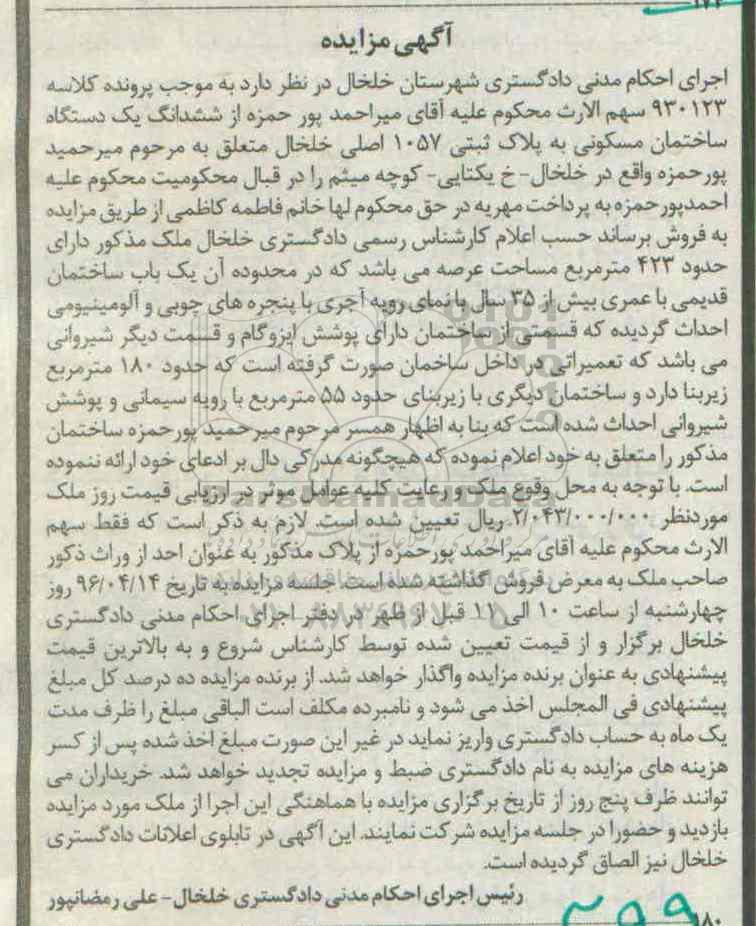 ۱۷۲
آگهی مزایده
اجرای احکام مدنی دادگستری شهرستان خلخال در نظر دارد به موجب پرونده کلاسه
۹۳۰۱۲۳ سهم الارث محکوم علیه آقای میراحمد پور حمزه از ششدانگ یک دستگاه
ساختمان مسکونی به پلاک ثبتی ۱۰۵۷ اصلی خلخال متعلق به مرحوم میرحمید
پورحمزه واقع در خلخال- خ یکتایی- کوچه میثم را در قبال محکومیت محکوم علیه
احمدپورحمزه به پرداخت مهریه در حق محکوم لها خانم فاطمه کاظمی از طریق مزایده
به فروش برساند حسب اعلام کارشناس رسمی دادگستری خلخال ملک مذکور دارای
حدود ۴۲۳ مترمربع مساحت عرصه می باشد که در محدوده آن یک باب ساختمان
قدیمی با عمری بیش از ۳۵ سال با نمای رویه آجری با پنجره های چوبی و آلومینیومی
احداث گردیده که قسمتی از ساختمان دارای پوشش ایزوگام و قسمت دیگر شیروانی
می باشد که تعمیراتی در داخل ساخمان صورت گرفته است که حدود ۱۸۰ مترمربع
زیربنا دارد و ساختمان دیگری با زیربنای حدود ۵۵ مترمربع با رویه سیمانی و پوشش
شیروانی احداث شده است که بنا به اظهار همسر مرحوم میرحمید پورحمزه ساختمان
مذکور را متعلق به خود اعلام نموده که هیچگونه مدرکی دال بر ادعای خود ارائه ننموده
است. با توجه به محل وقوع ملک و رعایت کلیه عوامل موثر در ارزیابی قیمت روز ملک
موردنظر ۲/۰۴۳/۰۰۰/۰۰۰ ریال تعیین شده است. لازم به ذکر است که فقط سهم
الارث محکوم علیه آقای میراحمد پورحمزه از پلاک مذکور به عنوان احد از وراث ذکور
صاحب ملک به معرض فروش گذاشته شده است. جلسه مزایده به تاریخ ۹۶/۰۴/۱۴ روز
چهارشنبه از ساعت ۱۰ الی ۱۱ قبل از ظهر در دفتر اجرای احکام مدنی دادگستری
خلخال برگزار و از قیمت تعیین شده توسط کارشناس شروع و به بالاترین قیمت
پیشنهادی به عنوان برنده مزایده واگذار خواهد شد. از برنده مزایده ده درصد کل مبلغ
پیشنهادی فی المجلس اخذ می شود و نامبرده مکلف است الباقی مبلغ را ظرف مدت
یک ماه به حساب دادگستری واریز نماید در غیر این صورت مبلغ اخذ شده پس از کسر
هزینه های مزایده به نام دادگستری ضبط و مزایده تجدید خواهد شد. خریداران می
توانند ظرف پنج روز از تاریخ برگزاری مزایده با هماهنگی این اجرا از ملک مورد مزایده
بازدید و حضورا در جلسه مزایده شرکت نمایند. این آگهی در تابلوی اعلانات دادگستری
خلخال نیز الصاق گردیده است.
رئیس اجرای احکام مدنی دادگستری خلخال- علی رمضانپور
۱۸۰